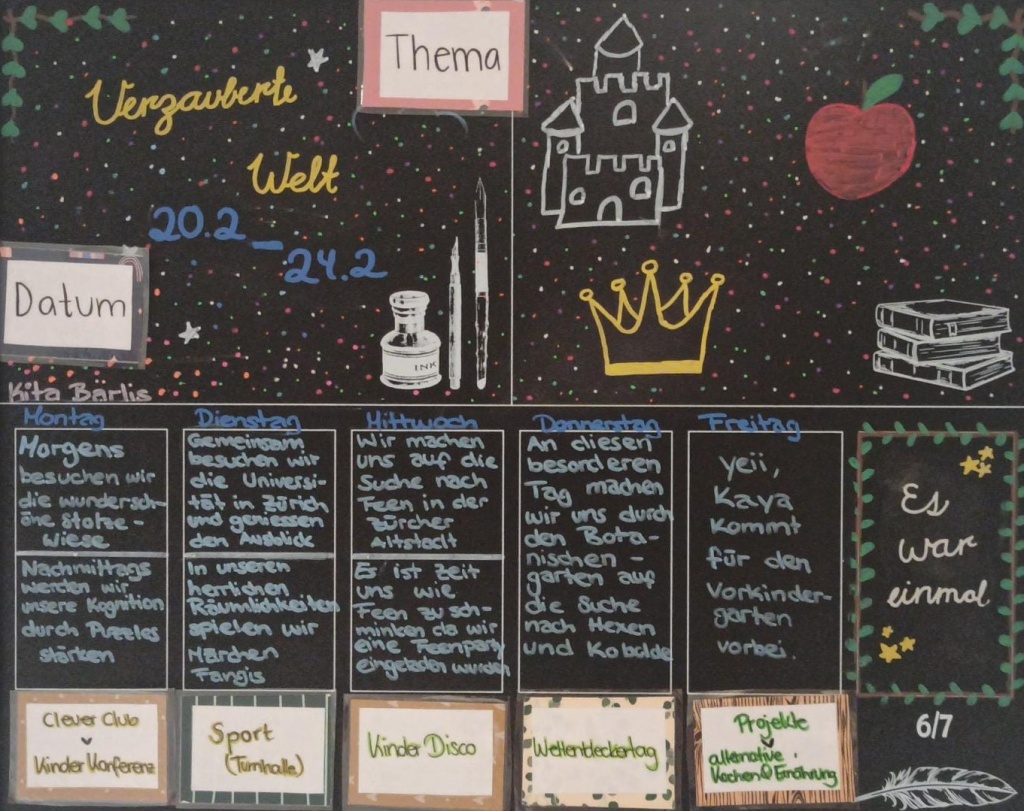 Thema
Verzauberte
Welt
20.2 –
24.2
Datum
INK
Kita Bärlis
Montag
Morgens
besuchen wir
die wundersch-
öne Stolze-
Wiese
Nachmittags
werden wir
unsere Kognition
durch Puzzles
stärken
Dienstag
Gemeinsam
besuchen wir
die Universi-
tät in Zürich
und geniessen
den Ausblick
In unseren
herrlichen
Räumlichkeiten
spielen wir
Märchen
Fangis
Mittwoch
Wir machen
uns auf die
Suche nach
Feen in der
Zürcher
Altstadt
Es ist Zeit
uns wie
Feen zu sch-
minken da wir
eine Feenparty
eingeladen wurden
Donnerstag
An diesen
besonderen
Tag machen
wir uns durch
den Bota-
nischen-
garten auf
die Suche
nach Hexen
und Kobolde
Freitag
yeii,
Kaya
kommt
für den
Vorkinder-
garten
vorbei.
Es
war
einmal
Clever Club
Kinder Konferenz
Sport
(Turnhalle)
Kinder Disco
Weltentdeckertag
Projekte
alternative
Kochen & Ernährung
6/7